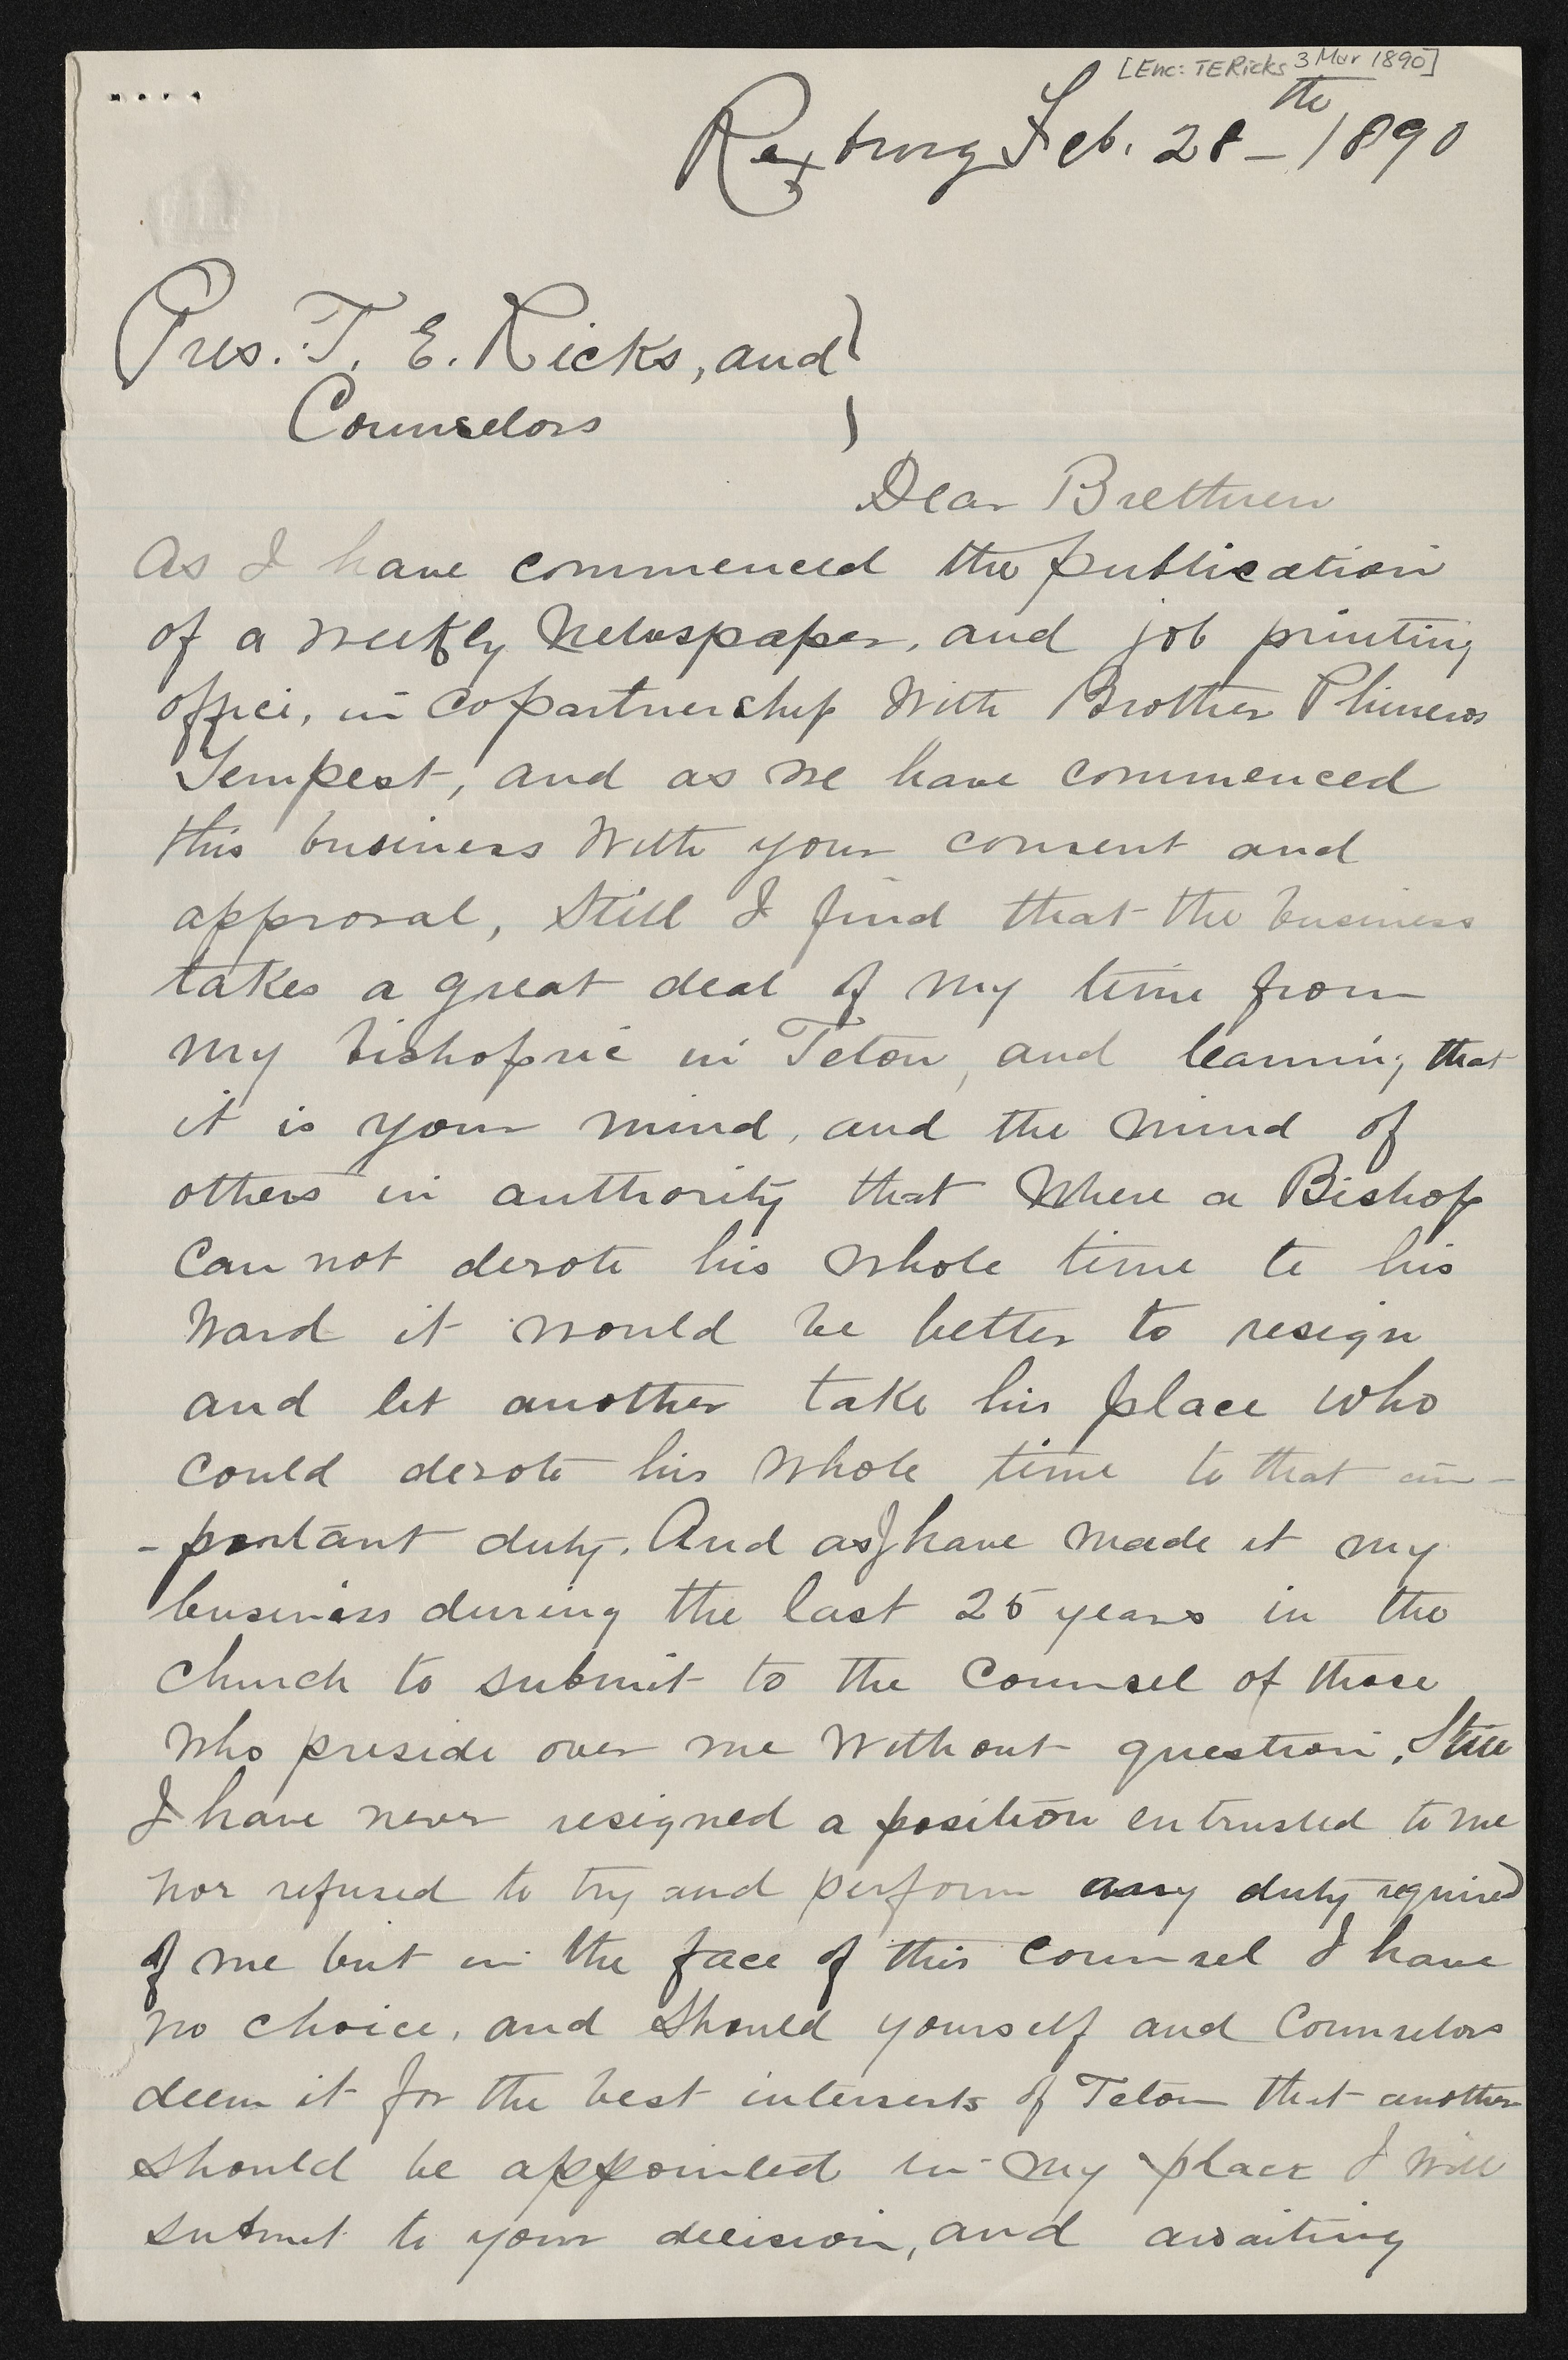 [Enc: TERicks 3 Mar 1890]
Rexburg Feb. 28th – 1890
Pres. T. E. Ricks, and
Counselors
Dear Brethren
As I have commenced the publication
of a weekly Newspaper, and job printing
office, in copartnership with Brother Phineas
Tempest, and as we have commenced
this business with your consent and
approval, still I find that the business
takes a great deal of my time from
my bishopric in Teton, and learning that
it is your mind, and the mind of
others in authority that where a Bishop
can not devote his whole time to his
ward it would be better to resign
and let another take his place who
could devote his whole time to that im-
-portant duty. And as I have made it my
business during the last 25 years in the
church to submit to the counsel of those
who preside over me without question, Still
I have never resigned a position entrusted to me
nor refused to try and perform any duty required
of me but in the face of this counsel I have
no choice, and should yourself and Counselors
deem it for the best interserts of Teton that another
should be appointed in my place I will
submit to your decision, and awaiting